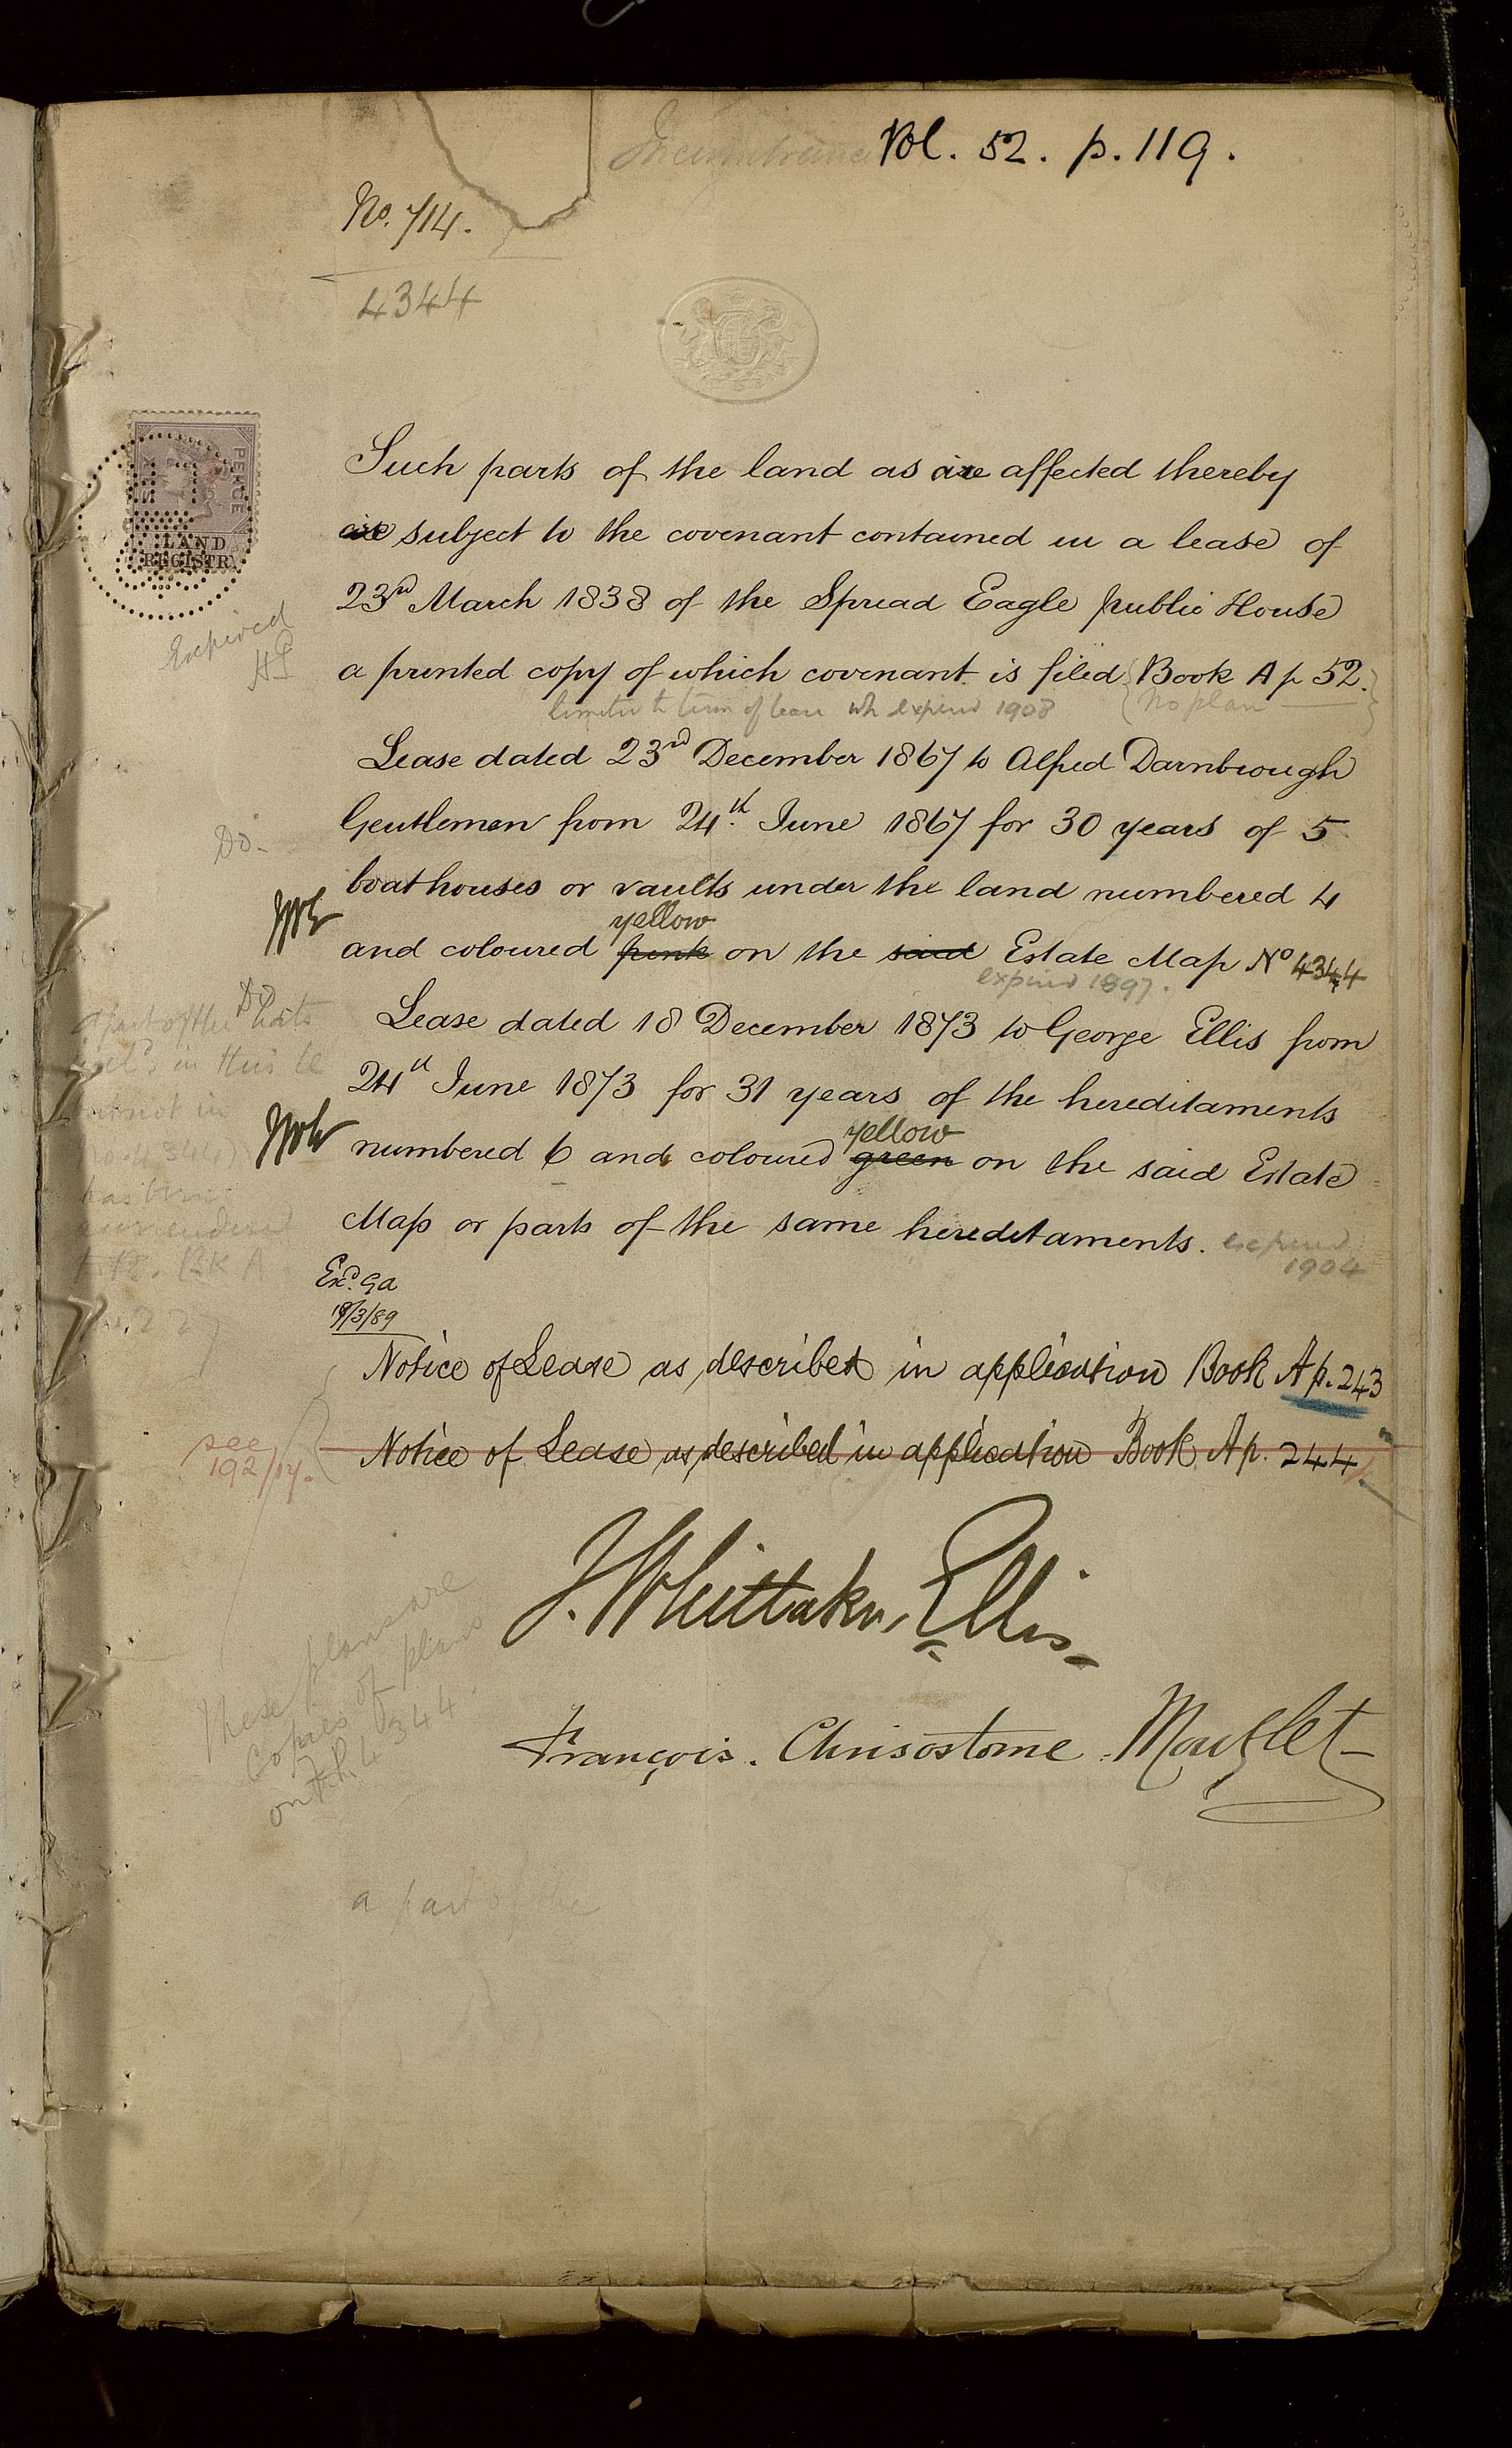 Incumbrances Vol. 52. p. 119.
No. 714.
4344
PENCE
LAND
REGISTRY
Such parts of the land as are affected thereby
are subject to the covenant contained in a lease of
23rd March 1838 of the Spread Eagle public House
Expired
a printed copy of which covenant is filed {Book A p 52.}
limited to term of lease wh expired 1908 {No plan}
Lease dated 23rd December 1867 to Alfred Darnbrough
Gentleman from 24th June 1867 for 30 years of 5
Do.
boathouses or vaults under the land numbered 4
yellow
and coloured pink on the said Estate Map No 4344
expired 1897.
Do
Lease dated 18 December 1873 to George Ellis from
24th June 1873 for 31 years of the hereditaments
yellow
numbered 6 and coloured green on the said Estate
Map or parts of the same hereditaments. expired
1904
Exd. GA
19/3/89
Notice of Lease as described in application Book A p. 243
Notice of Lease as described in application Book A p. 244
see
192/14.
J. Whittaker Ellis
François. Chrisostome. Mouflet
These plans are
copies of plans
on 4344
a part of the